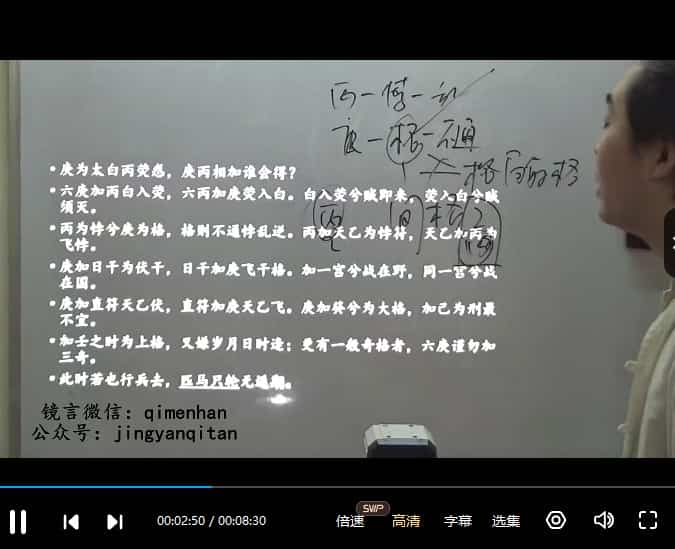 丙一悖一乱
庚一格一不通
• 庚为太白丙荧惑，庚丙相加谁会得？
• 六庚加丙白入荧，六丙加庚荧入白。白入荧兮贼即来，荧入白兮贼
须灭。
• 丙为悖兮庚为格，格则不通悖乱逆。丙加天乙为悖符，天乙加丙为
飞悖。
• 庚加日干为伏干，日干加庚飞干格。加一宫兮战在野，同一宫兮战
在国。
• 庚加直符天乙伏，直符加庚天乙飞。庚加癸兮为大格，加己为刑最
不宜。
• 加壬之时为上格，又嫌岁月日时逢；更有一般奇格者，六庚谨勿加
三奇。
• 此时若也行兵去，匹马只轮无返期。
镜言微信：qimenhan
公众号：jingyanqitan
00:02:50 / 00:08:30
倍速
SVIP
高清
字幕
选集